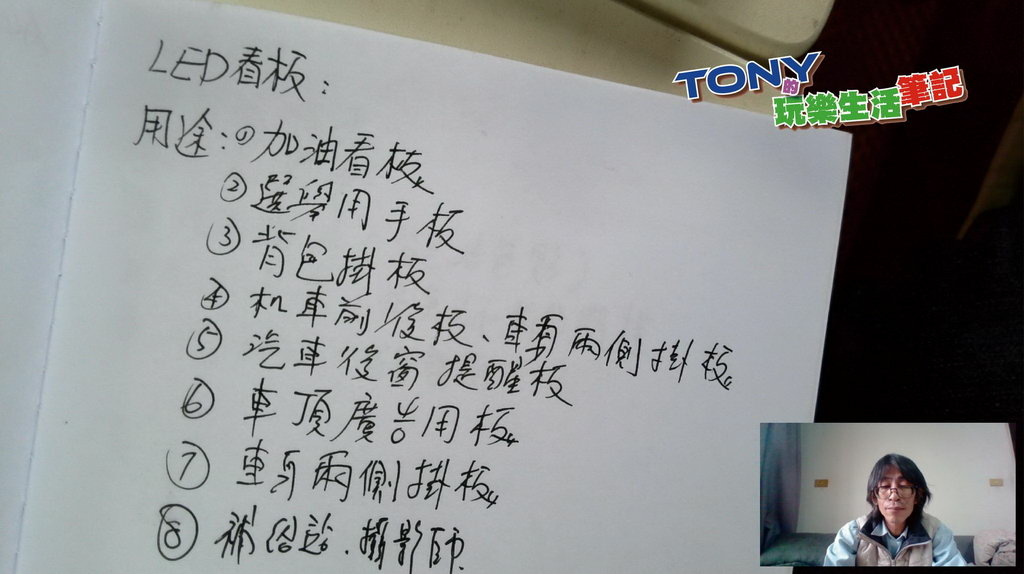 LED看板：
用途：① 加油看板
② 選舉用手板
③ 背包掛板
④ 机車前後板、車頭兩側掛板
⑤ 汽車後窗提醒板
⑥ 車頂廣告用板
⑦ 車身兩側掛板
⑧ 補給站、攝影師
TONY的玩樂生活筆記